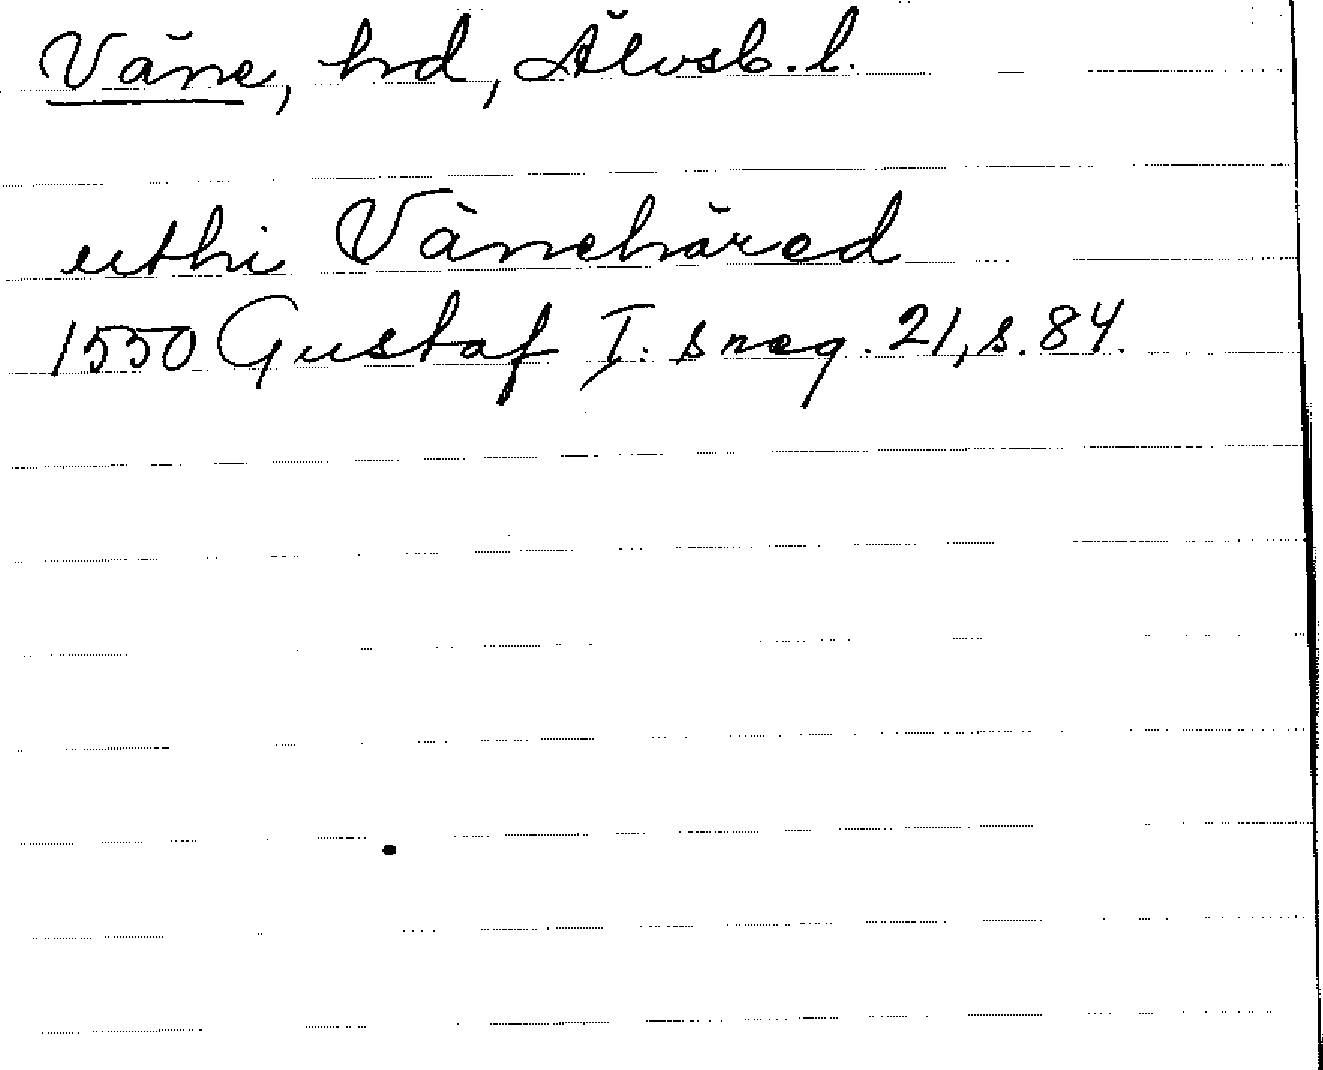 Väne, hd, Älvsb. l.
uthi Väneháred
1550 Gustaf I:s reg. 21, s. 84.